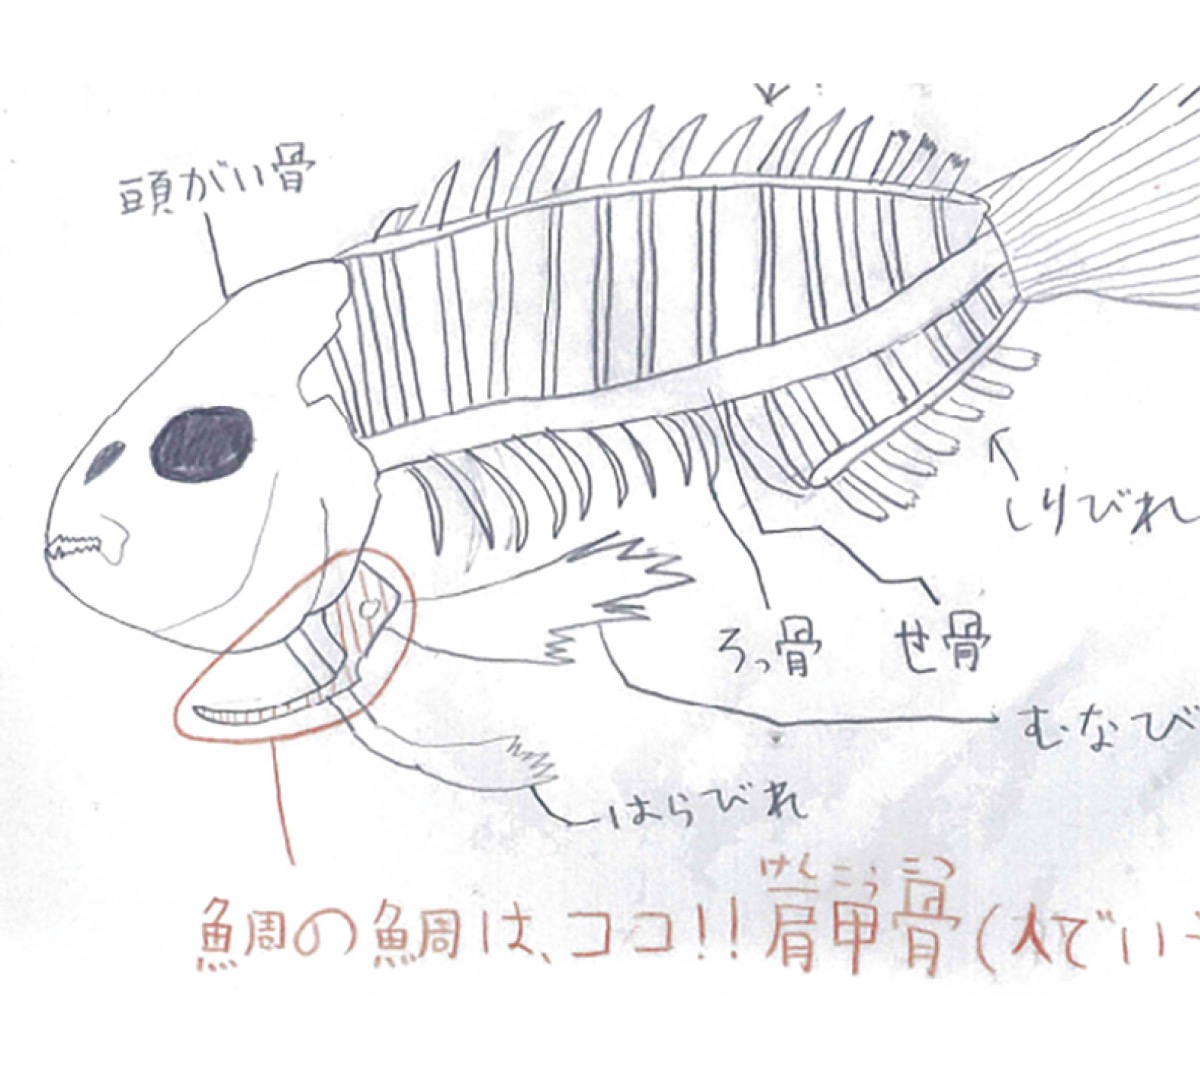 頭がい骨
しりびれ
ろっ骨
せ骨
むなび
はらびれ
けんこうこつ
鯛の鯛は、ココ!!肩甲骨(人でいう